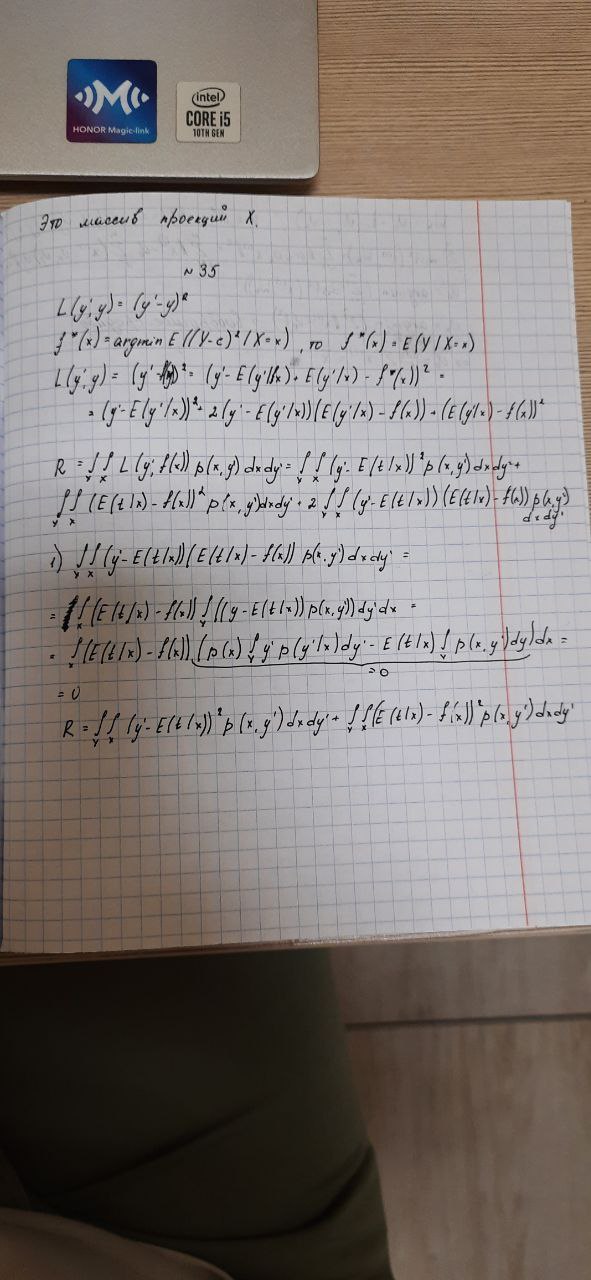 HONOR Magic-link
intel
CORE i5
10TH GEN
Это массив проекций X.
~ 35
L(y', y) = (y' - y)²
f*(x) = argmin E((Y-c)² / X=x), то f*(x) = E(Y / X=x)
L(y', y) = (y' - f(x))² = (y' - E(y'/x) + E(y'/x) - f*(x))² =
= (y' - E(y'/x))² + 2(y' - E(y'/x))(E(y'/x) - f(x)) + (E(y'/x) - f(x))²
R = ∫∫ L(y', f(x)) p(x, y') dx dy' = ∫∫ (y' - E(t/x))² p(x, y') dx dy' +
∫∫ (E(t/x) - f(x))² p(x, y') dx dy' + 2 ∫∫ (y' - E(t/x))(E(t/x) - f(x)) p(x, y') dx dy'
1) ∫∫ (y' - E(t/x))(E(t/x) - f(x)) p(x, y') dx dy' =
= ∫ (E(t/x) - f(x)) ∫ ((y - E(t/x)) p(x, y')) dy' dx =
= ∫ (E(t/x) - f(x)) (p(x) ∫ y' p(y'/x) dy' - E(t/x) ∫ p(x, y') dy') dx =
= 0
= 0
R = ∫∫ (y' - E(t/x))² p(x, y') dx dy' + ∫∫ (E(t/x) - f(x))² p(x, y') dx dy'